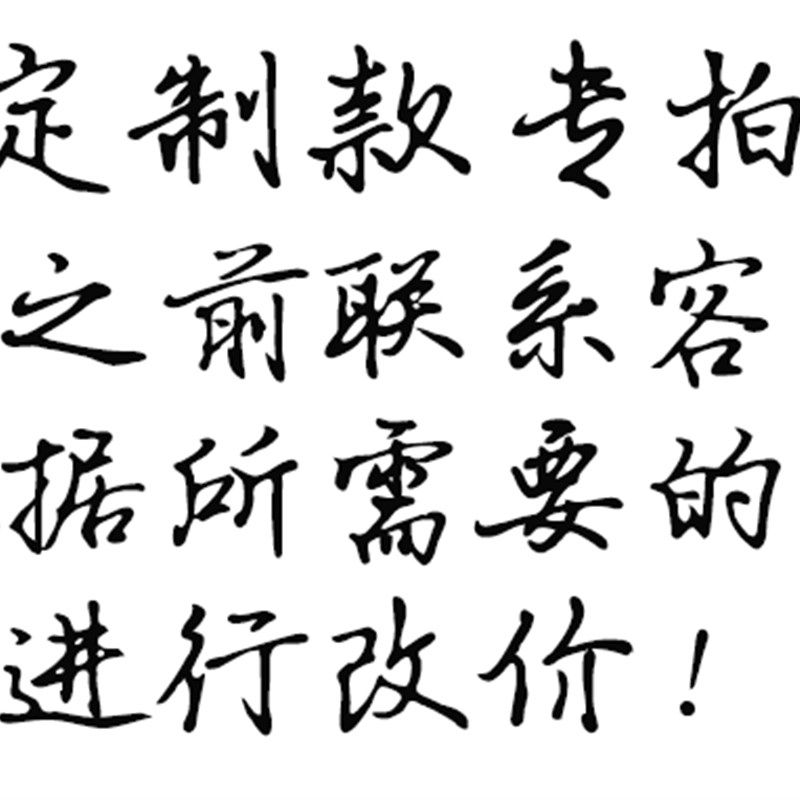 定制款专拍
之前联系客
据所需要的
进行改价!